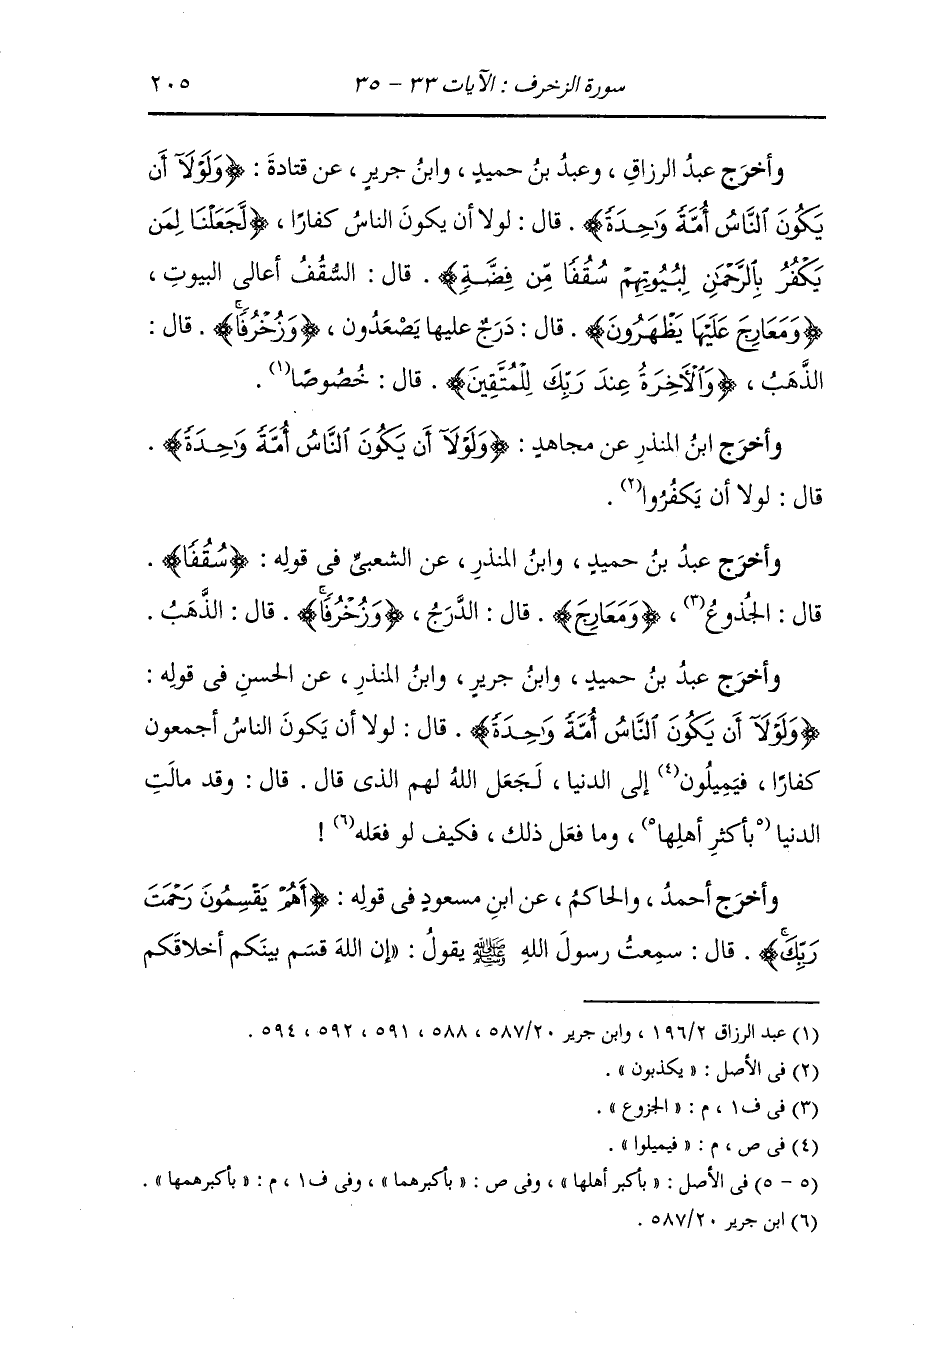 سورة الزخرف : الآيات ٣٣ - ٣٥
٢٠٥
وأخرَج عبدُ الرزاقِ ، وعبدُ بنُ حميدٍ ، وابنُ جريرٍ ، عن قتادةَ : ﴿وَلَوْلَآ أَن
يَكُونَ ٱلنَّاسُ أُمَّةً وَٰحِدَةً﴾ . قال : لولا أن يكونَ الناسُ كفارًا ، ﴿لَّجَعَلْنَا لِمَن
يَكْفُرُ بِٱلرَّحْمَٰنِ لِبُيُوتِهِمْ سُقُفًا مِّن فِضَّةٍ﴾ . قال : السُّقُفُ أعالى البيوتِ ،
﴿وَمَعَارِجَ عَلَيْهَا يَظْهَرُونَ﴾ . قال : دَرَجٌ عليها يَصْعَدُون ، ﴿وَزُخْرُفًاۚ﴾ . قال :
الذَّهَبُ ، ﴿وَٱلْأَخِرَةُ عِندَ رَبِّكَ لِلْمُتَّقِينَ﴾ . قال : خُصُوصًا(١) .
وأخرَج ابنُ المنذرِ عن مجاهدٍ : ﴿وَلَوْلَآ أَن يَكُونَ ٱلنَّاسُ أُمَّةً وَٰحِدَةً﴾ .
قال : لولا أن يَكفُرُوا(٢) .
وأخرَج عبدُ بنُ حميدٍ ، وابنُ المنذرِ ، عن الشعبىِّ فى قولِه : ﴿سُقُفًا﴾ .
قال : الجُذوعُ(٣) ، ﴿وَمَعَارِجَ﴾ . قال : الدَّرَجُ ، ﴿وَزُخْرُفًاۚ﴾ . قال : الذَّهَبُ .
وأخرَج عبدُ بنُ حميدٍ ، وابنُ جريرٍ ، وابنُ المنذرِ ، عن الحسنِ فى قولِه :
﴿وَلَوْلَآ أَن يَكُونَ ٱلنَّاسُ أُمَّةً وَٰحِدَةً﴾ . قال : لولا أن يَكونَ الناسُ أجمعون
كفارًا ، فيَمِيلُون(٤) إلى الدنيا ، لَجَعَل اللهُ لهم الذى قال . قال : وقد مالَتِ
الدنيا (٥بأكثرِ أهلِها٥) ، وما فعَل ذلك ، فكيف لو فعَله(٦) !
وأخرَج أحمدُ ، والحاكمُ ، عن ابنِ مسعودٍ فى قولِه : ﴿أَهُمْ يَقْسِمُونَ رَحْمَتَ
رَبِّكَۚ﴾ . قال : سمِعتُ رسولَ اللهِ ﷺ يقولُ : «إن اللهَ قسَم بينَكم أخلاقَكم
(١) عبد الرزاق ١٩٦/٢ ، وابن جرير ٥٨٧/٢٠ ، ٥٨٨ ، ٥٩١ ، ٥٩٢ ، ٥٩٤ .
(٢) فى الأصل : « يكذبون » .
(٣) فى ف١ ، م : « الجزوع » .
(٤) فى ص ، م : « فيميلوا » .
(٥ - ٥) فى الأصل : « بأكبر أهلها » ، وفى ص : « بأكبرهما » ، وفى ف١ ، م : « بأكبرهمها » .
(٦) ابن جرير ٥٨٧/٢٠ .